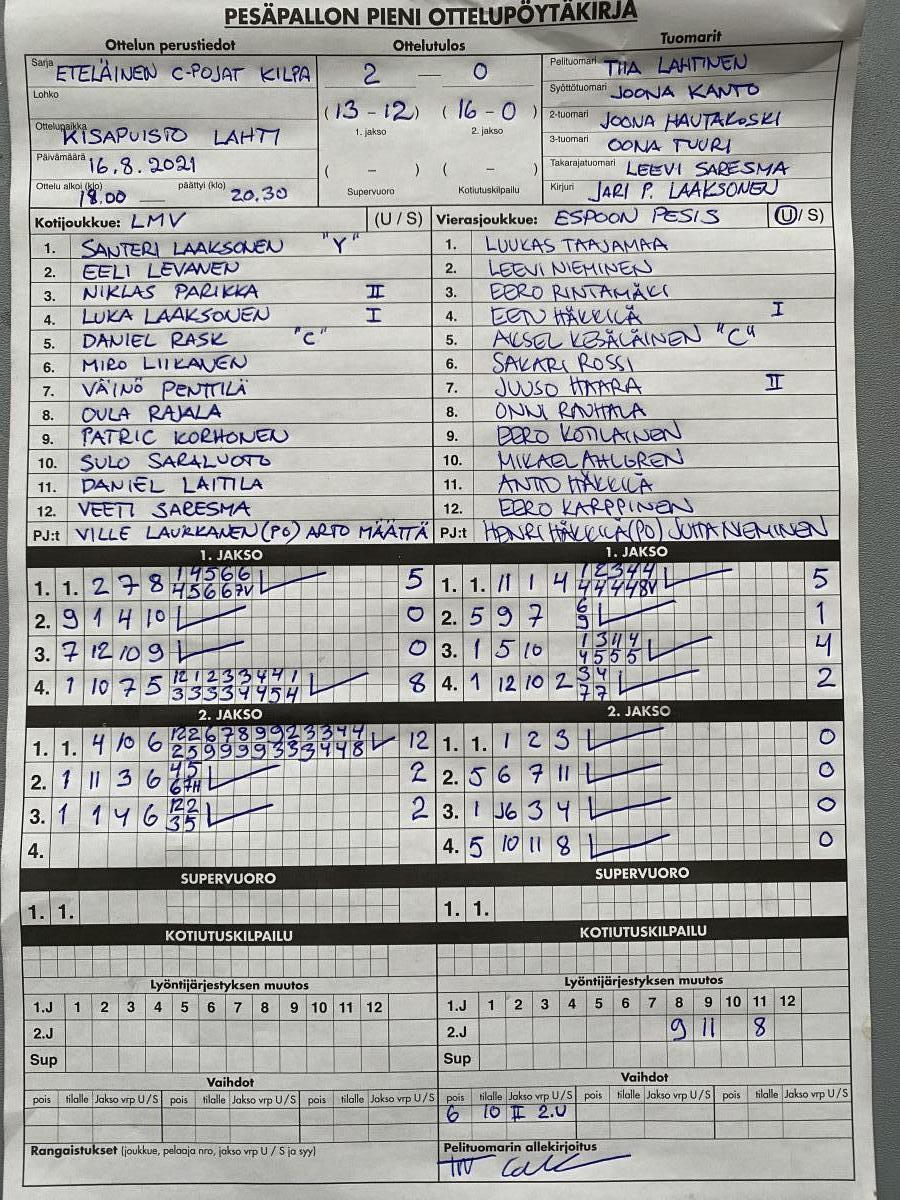 PESÄPALLON PIENI OTTELUPÖYTÄKIRJA
Ottelun perustiedot Ottelutulos Tuomarit
Sarja ETELÄINEN C-POJAT KILPA
Lohko
Ottelupaikka KISAPUISTO LAHTI
Päivämäärä 16.8.2021
Ottelu alkoi (klo) 18.00 — päättyi (klo) 20.30
2 — 0
(13 - 12) (16 - 0)
1. jakso 2. jakso
( - ) ( - )
Supervuoro Kotiutuskilpailu
Pelituomari TIIA LAHTINEN
Syöttötuomari JOONA KANTO
2-tuomari JOONA HAUTAKOSKI
3-tuomari OONA TUURI
Takarajatuomari LEEVI SARESMA
Kirjuri JARI P. LAAKSONEN
Kotijoukkue: LMV (U / S)
1. SANTERI LAAKSONEN "Y"
2. EELI LEVANEN
3. NIKLAS PARIKKA II
4. LUKA LAAKSONEN I
5. DANIEL RASK "C"
6. MIRO LIIKANEN
7. VÄINÖ PENTTILÄ
8. OULA RAJALA
9. PATRIC KORHONEN
10. SULO SARALUOTO
11. DANIEL LAITILA
12. VEETI SARESMA
PJ:t VILLE LAURKANEN (PO) ARTO MÄÄTTÄ
Vierasjoukkue: ESPOON PESIS (U / S)
1. LUUKAS TAAJAMAA
2. LEEVI NIEMINEN
3. EERO RINTAMÄKI
4. EETI HÄKKILÄ I
5. AKSEL KESÄLÄINEN "C"
6. SAKARI ROSSI
7. JUUSO HAARA II
8. ONNI RAUHALA
9. EERO KOTILAINEN
10. MIKAEL AHLGREN
11. ANTTO HÄKKILÄ
12. EERO KARPPINEN
PJ:t HENRI HÄKKILÄ (PO) JUTTA NIEMINEN
1. JAKSO
1. 1. 2 7 8 14566 5
45667V
2. 9 1 4 10 0
3. 7 12 10 9 0
4. 1 10 7 5 12 1 2 3 3 4 4 1 8
3 3 3 3 4 4 5 4
1. JAKSO
1. 1. 11 1 4 12344 5
44448V
2. 5 9 7 6 1
9
3. 1 5 10 1344 4
4555
4. 1 12 10 2 34 2
77
2. JAKSO
1. 1. 4 10 6 12 2 6 7 8 9 9 2 3 3 4 4 12
2 5 9 9 9 9 3 3 3 4 4 8
2. 1 11 3 6 45 2
67H
3. 1 1 4 6 122 2
35
4.
2. JAKSO
1. 1. 1 2 3 0
2. 5 6 7 11 0
3. 1 J6 3 4 0
4. 5 10 11 8 0
SUPERVUORO
1. 1.
SUPERVUORO
1. 1.
KOTIUTUSKILPAILU
KOTIUTUSKILPAILU
Lyöntijärjestyksen muutos
1.J 1 2 3 4 5 6 7 8 9 10 11 12
2.J
Sup
Lyöntijärjestyksen muutos
1.J 1 2 3 4 5 6 7 8 9 10 11 12
2.J 9 11 8
Sup
Vaihdot
pois tilalle Jakso vrp U/S pois tilalle Jakso vrp U/S pois tilalle Jakso vrp U/S
Vaihdot
pois tilalle Jakso vrp U/S pois tilalle Jakso vrp U/S pois tilalle Jakso vrp U/S
6 10 II 2.U
Rangaistukset (joukkue, pelaaja nro, jakso vrp U / S ja syy)
Pelituomarin allekirjoitus